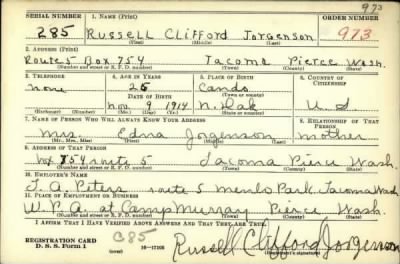 973
SERIAL NUMBER 1. NAME (Print) ORDER NUMBER
285 Russell Clifford Jorgenson 973
(First) (Middle) (Last)
2. ADDRESS (Print)
Route 5 Box 754 Tacoma Pierce Wash.
(Number and street or R. F. D. number) (Town) (County) (State)
3. TELEPHONE 4. AGE IN YEARS 5. PLACE OF BIRTH 6. COUNTRY OF CITIZENSHIP
none 25 Cando
DATE OF BIRTH (Town or county)
Nov 9 1914 N. Dak U. S
(Exchange) (Number) (Mo.) (Day) (Yr.) (State or country)
7. NAME OF PERSON WHO WILL ALWAYS KNOW YOUR ADDRESS 8. RELATIONSHIP OF THAT PERSON
Mrs. Edna Jorgenson mother
(Mr., Mrs., Miss) (First) (Middle) (Last)
9. ADDRESS OF THAT PERSON
Box 754 route 5 Tacoma Pierce Wash.
(Number and street or R. F. D. number) (Town) (County) (State)
10. EMPLOYER'S NAME
J. A. Peters route 5 Menlo Park Tacoma Wash
11. PLACE OF EMPLOYMENT OR BUSINESS
W. P. A. at Camp Murray Pierce Wash.
(Number and street or R. F. D. number) (Town) (County) (State)
I AFFIRM THAT I HAVE VERIFIED ABOVE ANSWERS AND THAT THEY ARE TRUE.
REGISTRATION CARD
D. S. S. Form 1 16-17105 Russell Clifford Jorgenson
(Registrant's signature)